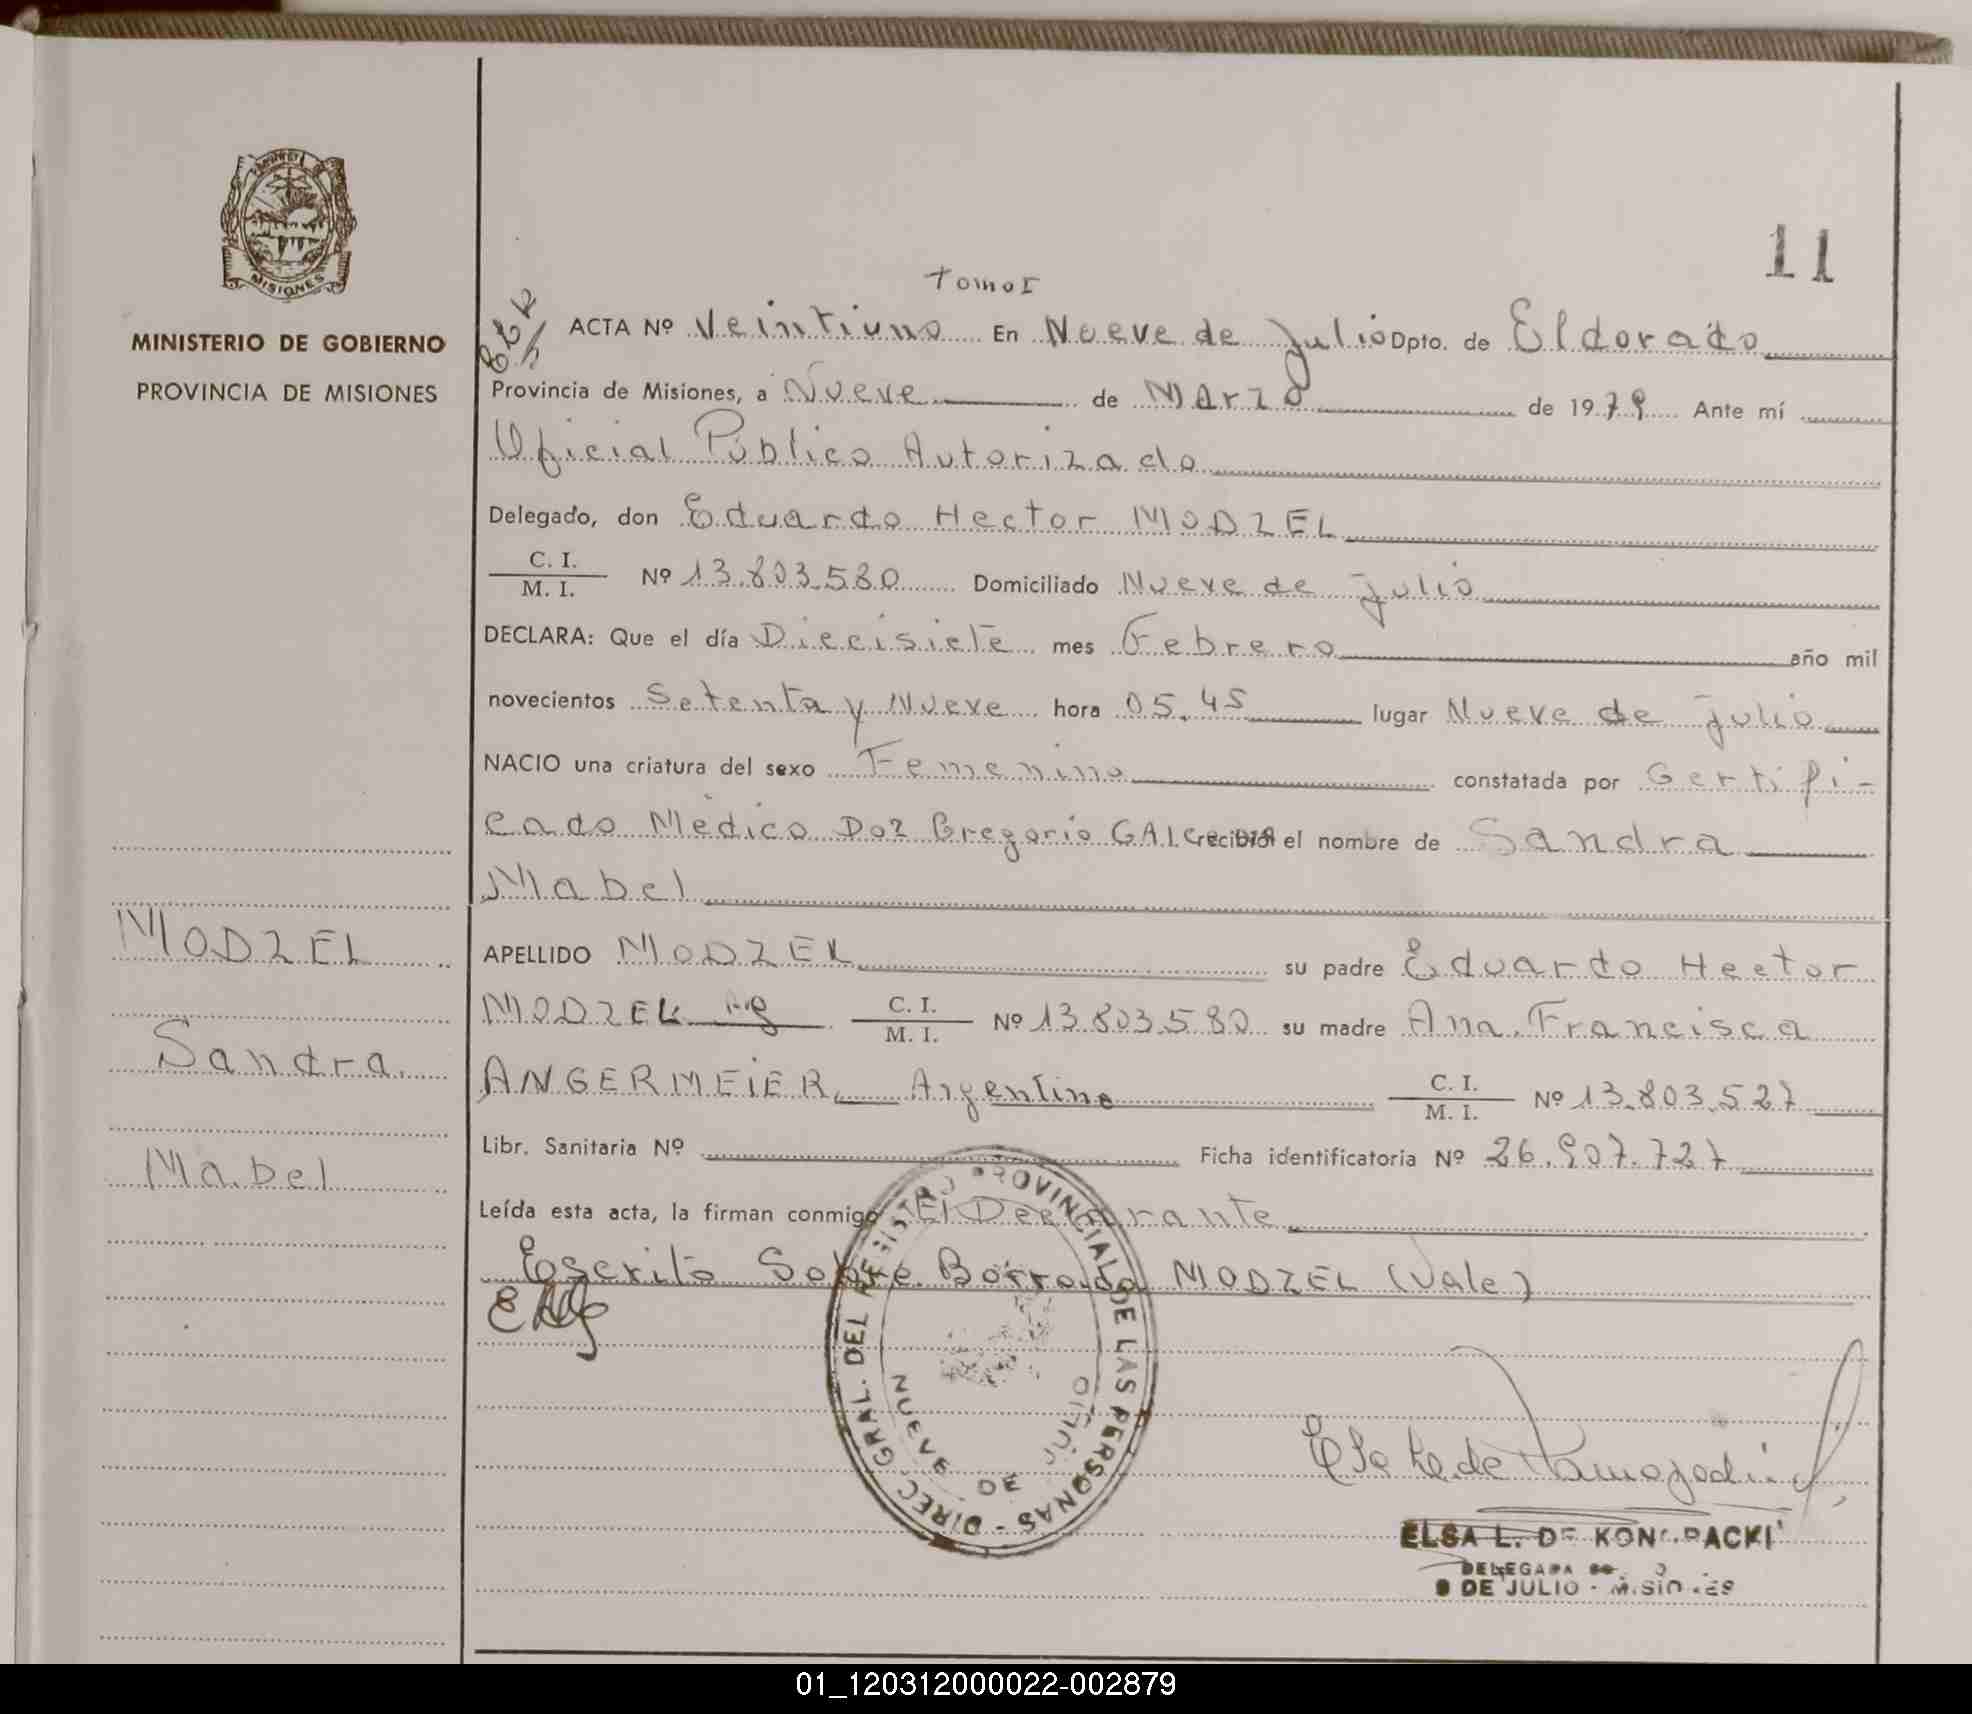 11
MISIONES
MINISTERIO DE GOBIERNO
PROVINCIA DE MISIONES
Tomo I
ACTA Nº Veintiuno En Nueve de Julio Dpto. de Eldorado
Provincia de Misiones, a Nueve de Marzo de 1979 Ante mí
Oficial Público Autorizado
Delegado, don Eduardo Hector MODZEL
C. I.
M. I.
Nº 13.803.580 Domiciliado Nueve de Julio
DECLARA: Que el día Diecisiete mes Febrero año mil
novecientos Setenta y Nueve hora 05.45 lugar Nueve de Julio
NACIO una criatura del sexo Femenino constatada por Certifi-
cado Médico Doz Gregorio recibió el nombre de Sandra
Mabel
MODZEL
Sandra
Mabel
APELLIDO MODZEL su padre Eduardo Hector
MODZEL C. I.
M. I.
Nº 13.803.580 su madre Ana Francisca
ANGERMEIER Argentina C. I.
M. I.
Nº 13.803.527
Libr. Sanitaria Nº Ficha identificatoria Nº 26.907.727
Leída esta acta, la firman conmigo El Declarante
Escrito Sobre Borrado MODZEL (Vale)
DIREC. GRAL. DEL REGISTRO PROVINCIAL DE LAS PERSONAS -
NUEVE DE JULIO
ELSA L. DE
DELEGADA
9 DE JULIO - MISIONES
01_120312000022-002879